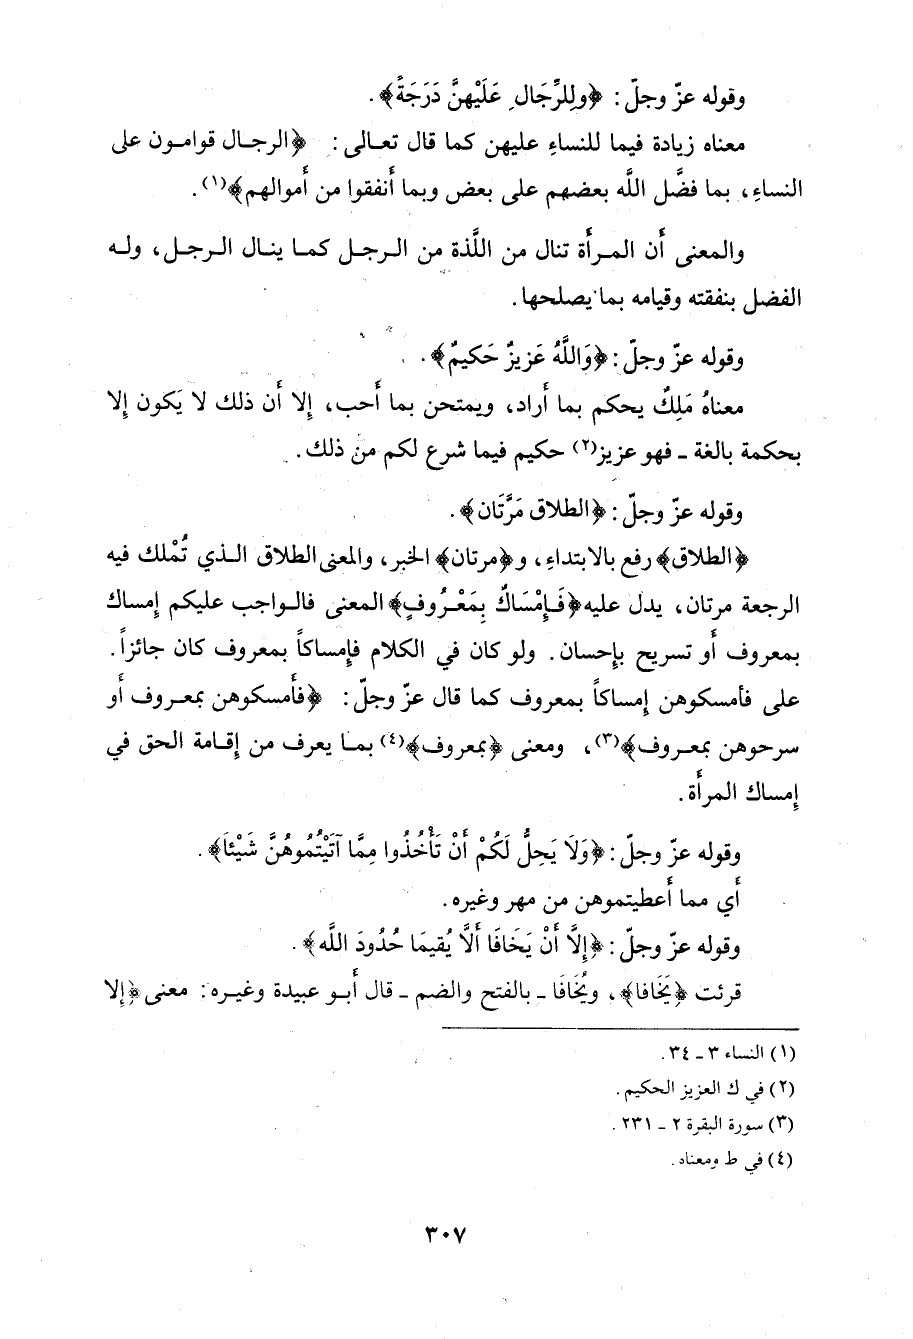 وقوله عزّ وجلّ: ﴿وللرِّجَالِ عَلَيْهِنَّ دَرَجَةً﴾.
معناه زيادة فيما للنساءِ عليهن كما قال تعالى: ﴿الرجال قوامون على
النساءِ، بما فضَّل اللَّه بعضهم على بعض وبما أَنفقوا من أَموالهم﴾(١).
والمعنى أَن المرأَة تنال من اللَّذة من الرجل كما ينال الرجل، وله
الفضل بنفقته وقيامه بما يصلحها.
وقوله عزّ وجلّ: ﴿وَاللَّهُ عَزِيزٌ حَكِيمٌ﴾.
معناهُ مَلِكٌ يحكم بما أَراد، ويمتحن بما أَحب، إِلا أَن ذلك لا يَكون إِلا
بحكمة بالغة ـ فهو عزيز(٢) حكيم فيما شرع لكم من ذلك.
وقوله عزّ وجلّ: ﴿الطلاق مَرَّتَان﴾.
﴿الطلاق﴾ رفع بالابتداءِ، و﴿مرتان﴾ الخبر، والمعنى الطلاق الذي تُمْلك فيه
الرجعة مرتان، يدل عليه ﴿فَإِمْسَاكٌ بِمَعْرُوفٍ﴾ المعنى فالواجب عليكم إِمساك
بمعروف أَو تسريح بإِحسان. ولو كان في الكلام فإِمساكاً بمعروف كان جائزاً.
على فأمسكوهن إِمساكاً بمعروف كما قال عزّ وجلّ: ﴿فأَمسكوهن بمعروف أَو
سرحوهن بمعروف﴾(٣)، ومعنى ﴿بمعروف﴾(٤) بما يعرف من إِقامة الحق في
إِمساك المرأَة.
وقوله عزّ وجلّ: ﴿وَلَا يَحِلُّ لَكُمْ أَنْ تَأْخُذُوا مِمَّا آتَيْتُمُوهُنَّ شَيْئاً﴾.
أَي مما أَعطيتموهن من مهر وغيره.
وقوله عزّ وجلّ: ﴿إِلَّا أَنْ يَخَافَا أَلَّا يُقِيمَا حُدُودَ اللَّه﴾.
قرئت ﴿يَخَافا﴾، ويُخَافَا ـ بالفتح والضم ـ قال أَبو عبيدة وغيره: معنى ﴿إِلا
(١) النساء ٣ ـ ٣٤.
(٢) في ك العزيز الحكيم.
(٣) سورة البقرة ٢ ـ ٢٣١.
(٤) في ط ومعناه.
٣٠٧